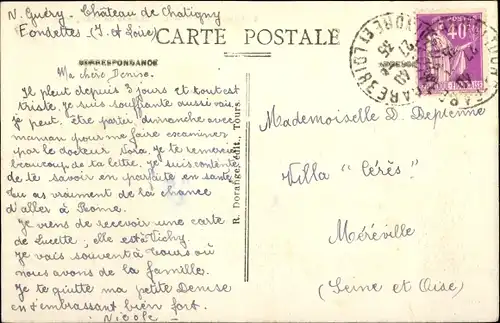 N. Guéry. Château de Chatigny
Fondettes (I. et Loire)
CARTE POSTALE
CORRESPONDANCE
Ma chère Denise.
Il pleut depuis 3 jours et tout est
triste. Je suis souffrante aussi vais
je peut être partir dimanche avec
maman pour me faire examiner
par le docteur. Je te remercie
beaucoup de ta lettre. Je suis contente
de te savoir en parfaite en santé
Tu as vraiment de la chance
d'aller à Rome.
Je viens de recevoir une carte
de Lucette, elle est à Vichy
Je vais souvent à Tours où
nous avons de la famille.
Je te quitte ma petite Denise
en t'embrassant bien fort.
Nicole
R. Dorange, édit., Tours.
40c
INDRE ET LOIRE
Mademoiselle D. Depienne
Villa "Cérès"
Méréville
(Seine et Oise)